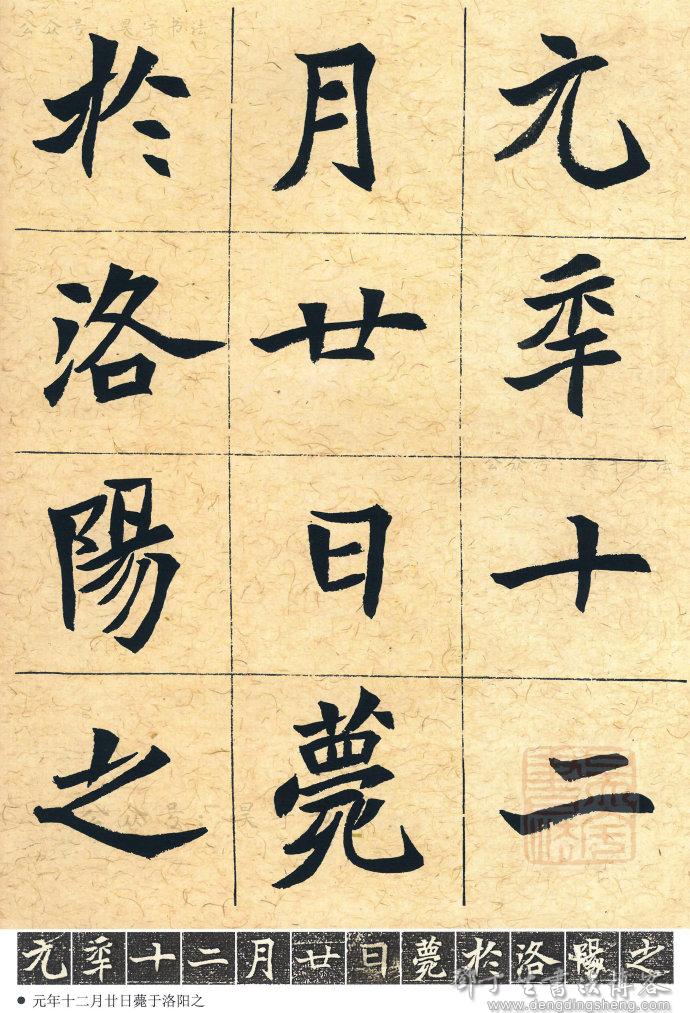 元年十二
月廿日薨
於洛陽之
元年十二月廿日薨於洛陽之
● 元年十二月廿日薨于洛阳之
公众号:昊宇书法
www.dengdingsheng.com